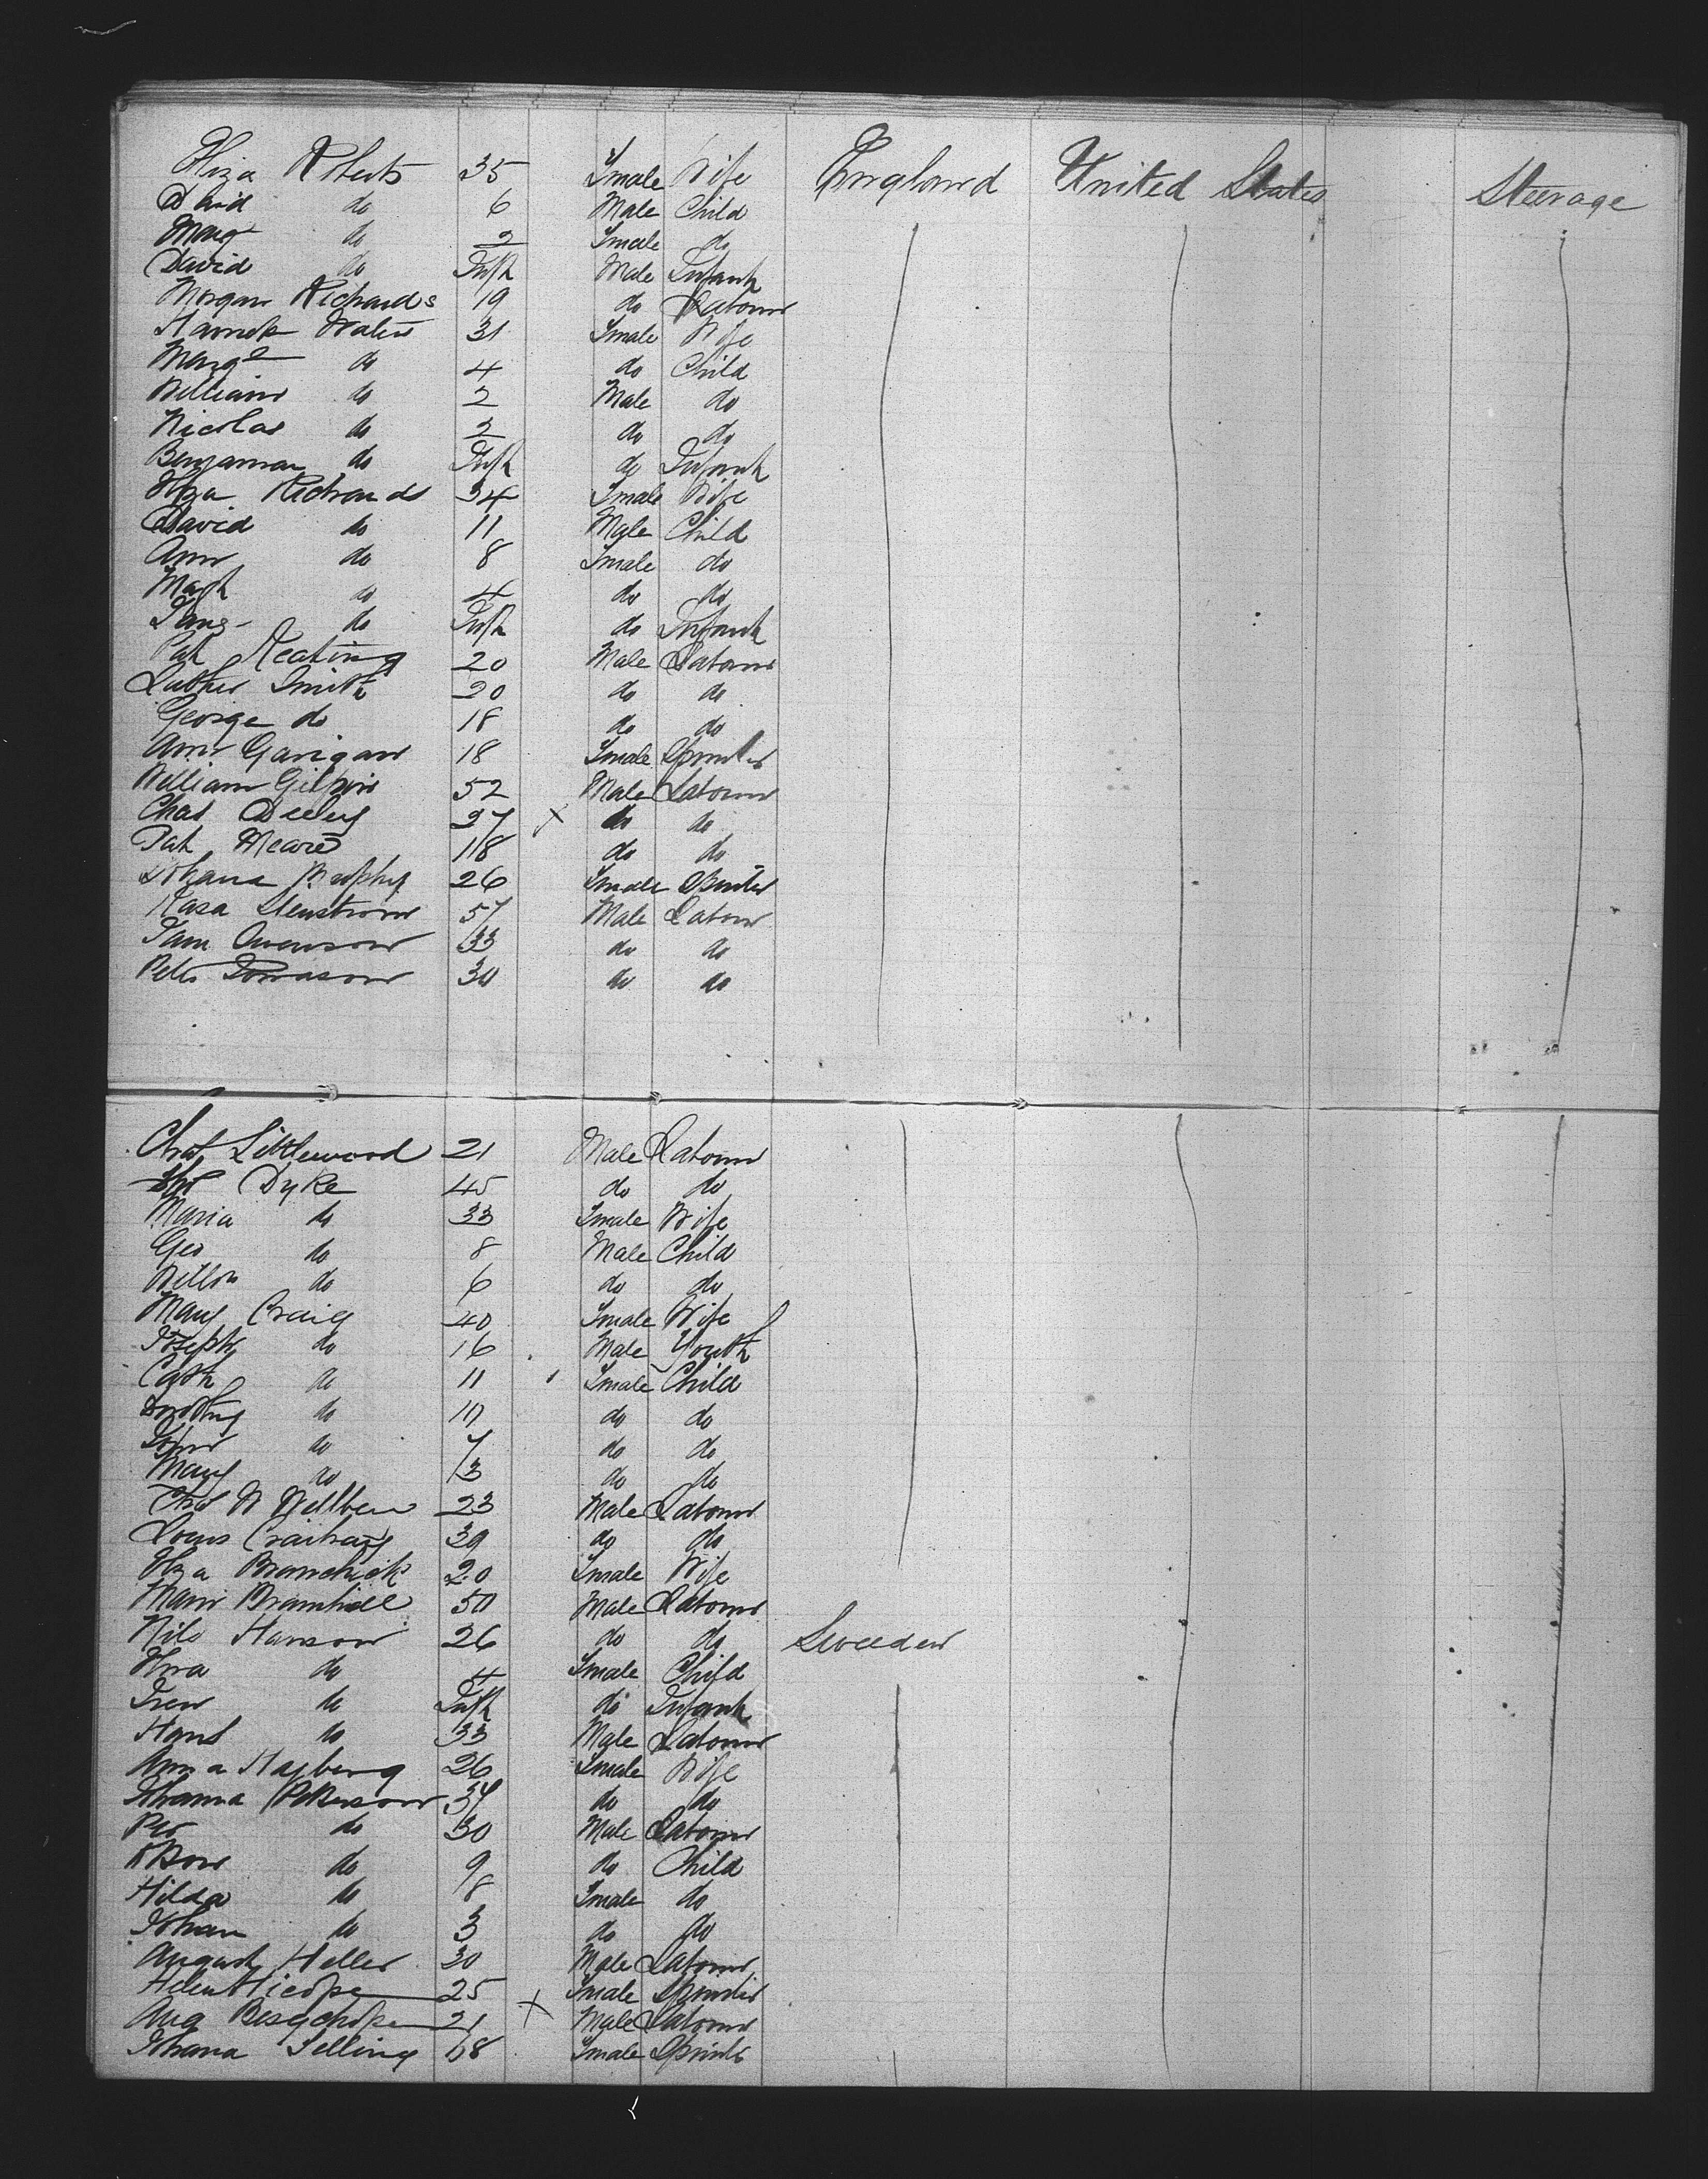 Eliza Roberts 35 Fmale Wife England United States Steerage
David do 6 Male Child
Marg do 2 Fmale do
David do Inft Male Infant
Morgan Richards 19 do Labourer
Hannah 31 Fmale Wife
Margt do 4 do Child
William do 2 Male do
Nicolas do 2 do do
Benjaman do Inft do Infant
Eliza Richards 34 Fmale Wife
David do 11 Male Child
Ann do 8 Fmale do
do 4 do do
Jane do Inft do Infant
Pat Keating 20 Male Labourer
Luther Smith 20 do do
George do 18 do do
Ann Garigan 18 Fmale Spinster
William Gilpin 52 Male Labourer
Chas 27 X do do
Pat 18 do do
Johana Murphy 26 Fmale Spinster
Stenstrom 57 Male Labour
33 do do
Peter 30 do do
Chas Littlewood 21 Male Labourer
Dyke 45 do do
Maria do 33 Fmale Wife
Geo do 8 Male Child
do 6 do do
Mary Craig 40 Fmale Wife
Joseph do 16 Male Youth
Cath do 11 Fmale Child
Dorothy do 10 do do
John do 7 do do
Mary do 3 do do
23 Male Labourer
Louis 39 do do
Eliza 20 Fmale Wife
Bramhall 50 Male Labourer
Nils Hanson 26 do do Sweeden
do 4 Fmale Child
do Inft do Infant
Hans do 33 Male Labourer
Anna Hagberg 26 Fmale Wife
Johanna Petterson 34 do do
Per do 30 Male Labourer
do 9 do Child
Hilda do 8 Fmale do
Johan do 3 do do
August Heller 30 Male Labourer
Helen 25 Fmale Spinster
Aug 21 X Male Labourer
Johana Selling 18 Fmale Spinster